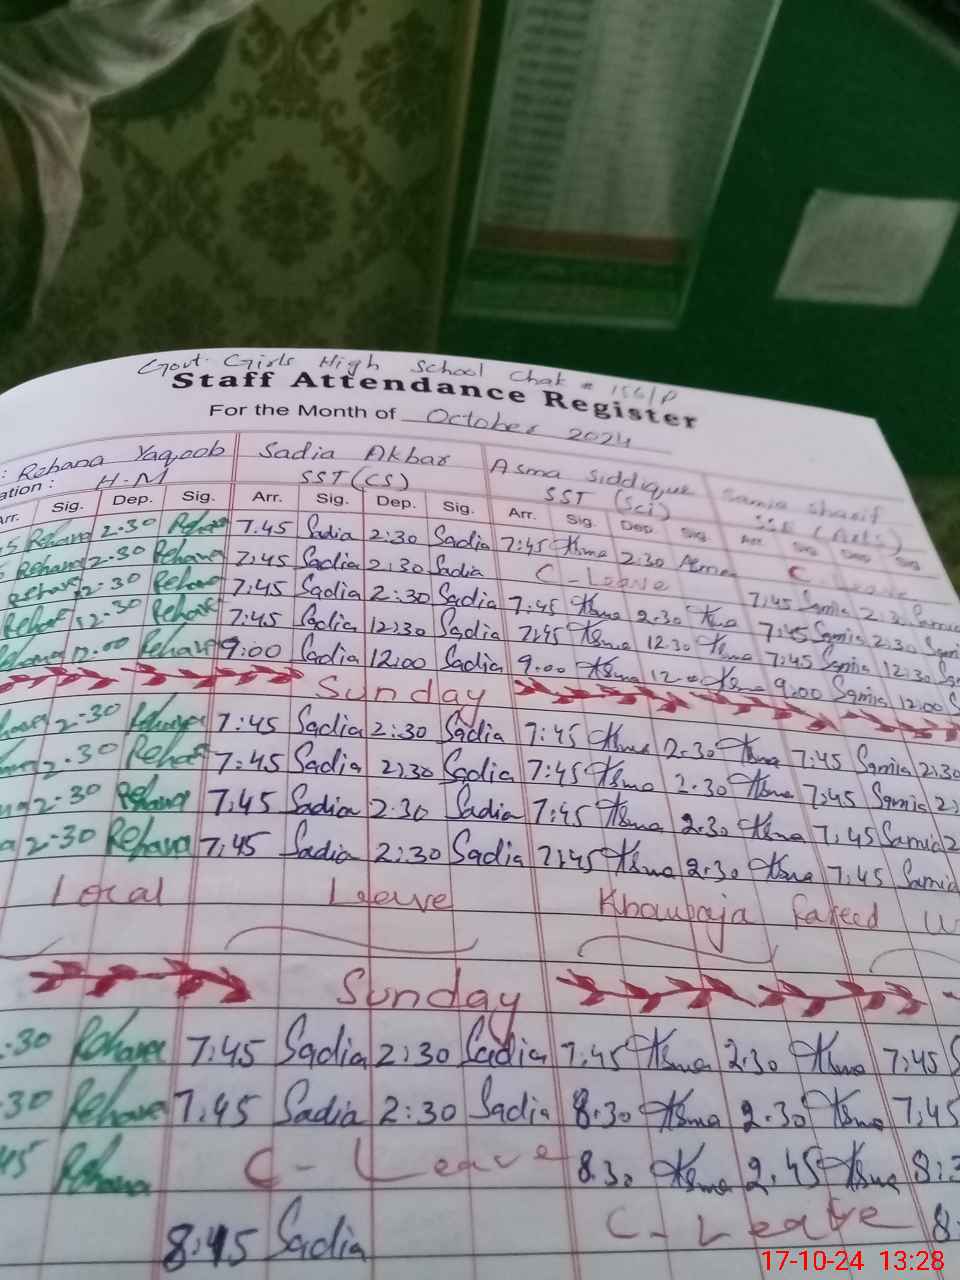 Govt. Girls High School Chak # 156/P
Staff Attendance Register
For the Month of October 2024
: Rehana Yaqoob Sadia Akbar Asma Siddique Samia Sharif
ation : H.M SST (CS) SST (Sci)
Arr. Sig. Dep. Sig. Arr. Sig. Dep. Sig. Arr. Sig. Dep. Sig. Arr. Sig. Dep. Sig.
Rehana 2.30 Rehana 7.45 Sadia 2:30 Sadia 7:45 Asma 2.30 Asma C. Leave
Rehana 2.30 Rehana 7:45 Sadia 2:30 Sadia C-Leave 7:45 Samia 2:30 Samia
Rehana 2:30 Rehana 7:45 Sadia 2:30 Sadia 7:45 Asma 2.30 Asma 7:45 Samia 2:30
Rehana 12.30 Rehana 7:45 Sadia 12:30 Sadia 7:45 Asma 12.30 Asma 7:45 Samia 12:30
Rehana 9:00 Sadia 12:00 Sadia 9.00 Asma Asma 9:00 Samia 12:00
Sunday
2-30 Rehana 7:45 Sadia 2:30 Sadia 7:45 Asma 2.30 Asma 7:45 Samia 2:30
2.30 Rehana 7:45 Sadia 2:30 Sadia 7:45 Asma 2.30 Asma 7:45 Samia
2-30 Rehana 7:45 Sadia 2.30 Sadia 7:45 Asma 2.30 Asma 7:45 Samia
2-30 Rehana 7:45 Sadia 2:30 Sadia 7:45 Asma 2.30 Asma 7:45 Samia
Local Leave Khawaja Fareed
Sunday
.30 Rehana 7:45 Sadia 2:30 Sadia 7:45 Asma 2.30 Asma 7:45
.30 Rehana 7.45 Sadia 2:30 Sadia 8.30 Asma 2.30 Asma 7:45
45 Rehana C-Leave 8.30 Asma 2.45 Asma 8:3
8:45 Sadia C-Leave 8:
17-10-24 13:28